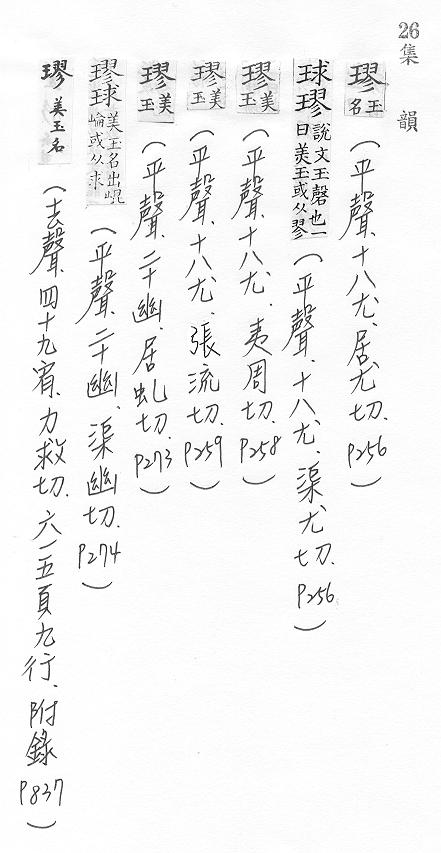 26集韻
璆玉名（平聲、十八尤、居尤切. P256）
球璆說文玉磬也一曰美玉或从翏（平聲、十八尤、渠尤切. P256）
璆美玉（平聲、十八尤、夷周切. P258）
璆美玉（平聲、十八尤、張流切. P259）
璆美玉（平聲、二十幽、居虬切. P273）
璆球美玉名出崐崘或从求（平聲、二十幽、渠幽切. P274）
璆美玉名（去聲、四十九宥、力救切. 六一五頁九行、附錄P837）